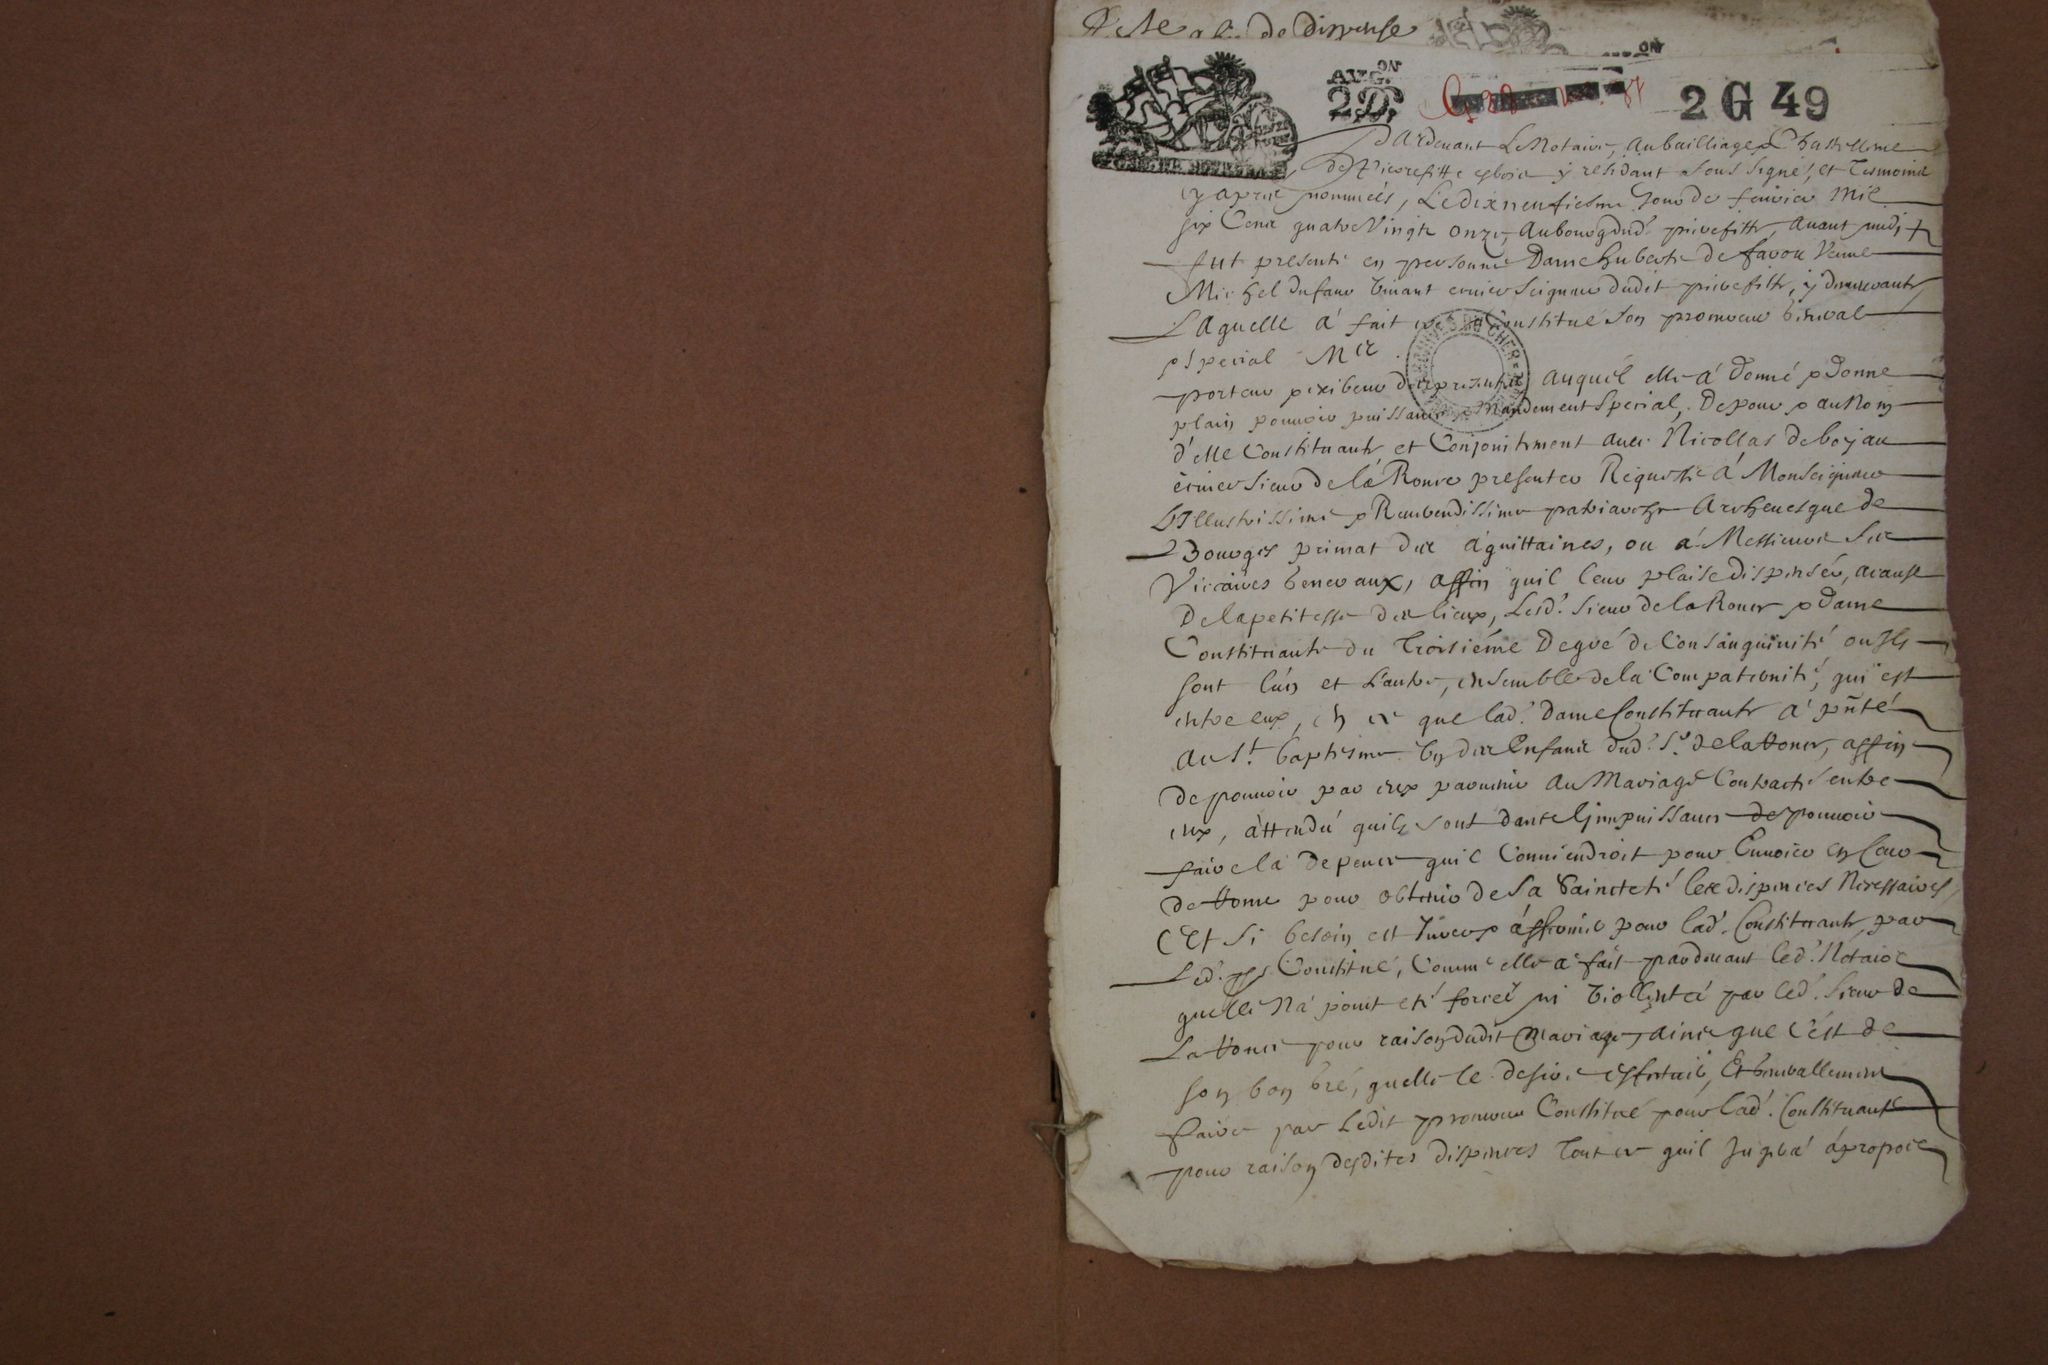 de dispense
AVG.ON
2D.
2 G 49
Pardevant Le Notaire, au bailliage & Chastellenie
de Pierrefitte es bois y residant sous signé, et Tesmoins
cy apres nommés, Le dixneufiesme Jour de feuvier Mil
six Cens quatre Vingts Onze, au bourg dud.t pierefitte, avant midy
fut presente en personne Dame huberte de favou Veuve
Michel dufaur vivant ecuier seigneur dudit pierefitte, y demeurante
LAquelle a fait et Constitué son procureur general
& special Mre
porteur & exibeur des presentes auquel elle a donné & donne
plain pouvoir puissance & Mandement Special, De pour & au Nom
d'elle Constituante et Conjointement avec Nicollas de bojau
ecuier sieur de la Roncé presenter Requeste a Monseigneur
L'Illustrissime & Reverendissime patriarche Archevesque de
Bourges primat des aquittaines, ou a Messieurs Ses
Viccaires generaux, affin quil leur plaise dispenser, acause
De la petitesse des lieux, Lesd. sieur de la Ronce & Dame
Constituante du Troisiéme Degré de Consanguinité ou Ils
sont l'un et L'autre, ensemble de la Compaternité, qui est
entre eux, en ce que lad. dame Constituante a pñté
au St. baptesme un des Enfans dud. Sr. de la Ronce, affin
de pouvoir par eux parvenir au Mariage Contracté entre
eux, attendu quils sont dans l'jmpuissance de pouvoir
faire la depence quil Conviendroit pour Envoier en Cour
de Rome pour obtenir de sa Sainteté les dispences Necessaires,
Et si besoin est Jurer & affirmer pour lad. Constituante, par
Led. Constitué, Comme elle a fait pardevant led. Notaire
quelle Na point eté forcée ni viollentée par led. Sieur de
La Ronce pour raison dudit Mariage, ains que C'est de
son bon gré, quelle le desire et generallement
faire par Ledit procureur Constitué pour lad. Constituante
pour raison desdites dispences Tout ce quil Jugera apropos